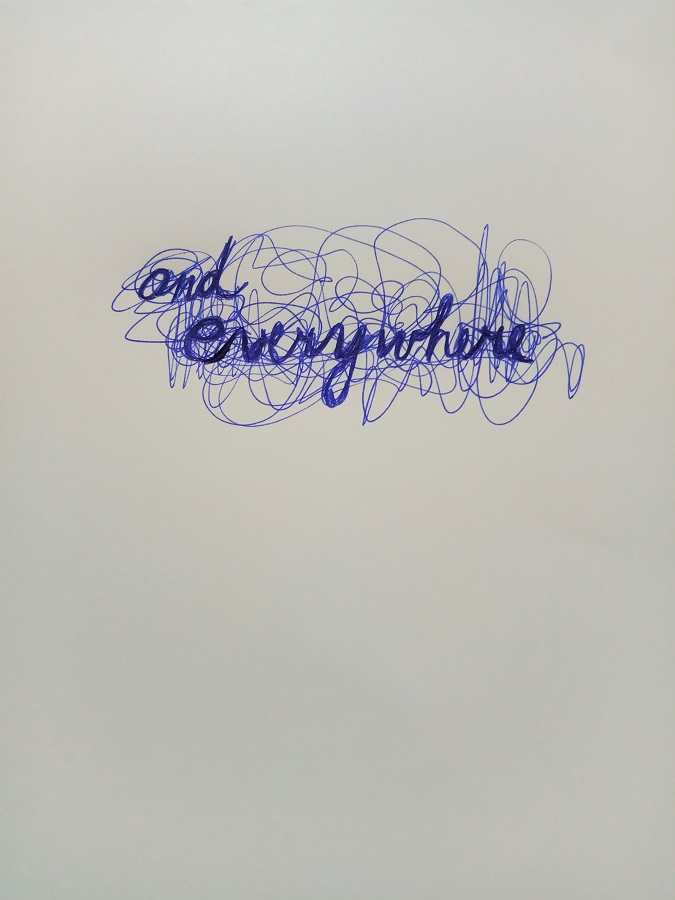 and
everywhere